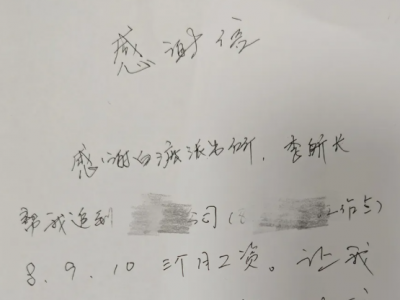 感谢信
感谢白礁派出所，李所长
帮我追到 公司（ 工作点）
8.9.10三个月工资。让我